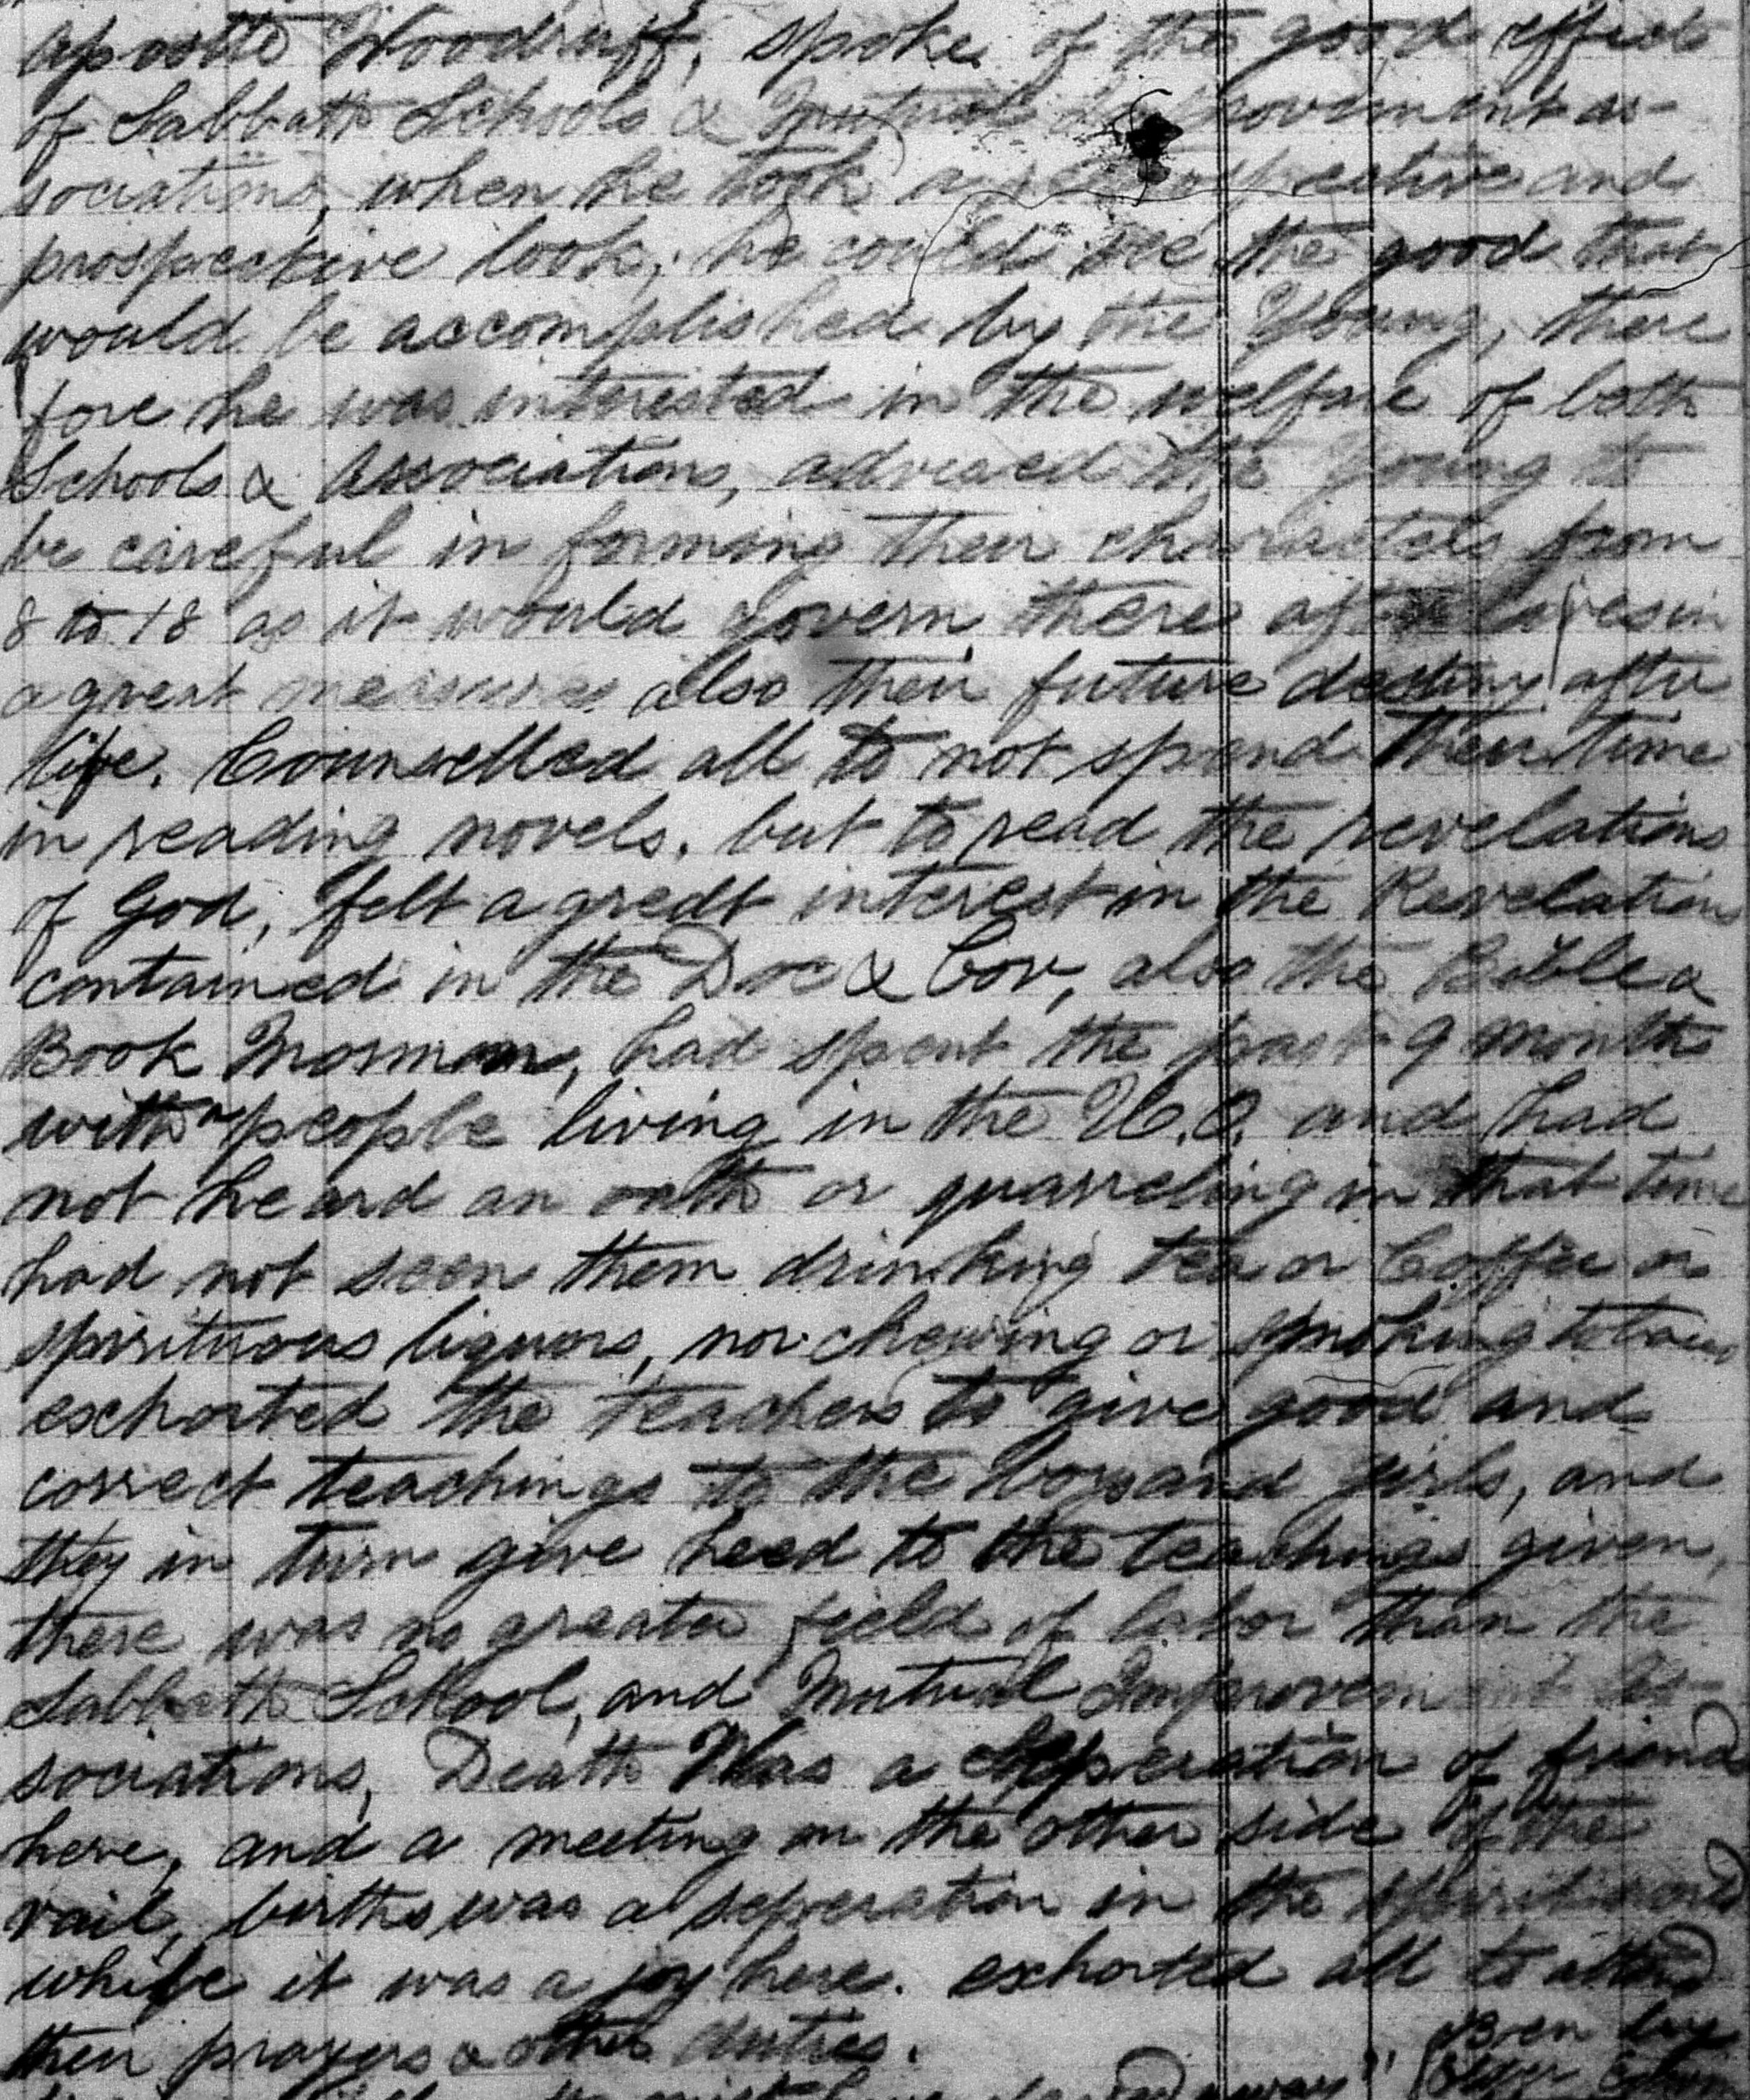 Apostle Woodruff, spoke of the good effect
of Sabbath Schools & Mutual Improvement as-
sociations, when he took a retrospective and
prospective look, he could see the good that
would be accomplished by the Young, there
fore he was interested in the welfare of both
Schools & Associations, advised the young to
be careful in forming their characters from
8 to 18 as it would govern there after lives in
a great measure also their future destiny after
life. Counselled all to not spend their time
in reading novels. but to read the revelations
of God, felt a great interest in the Revelation
contained in the Doc & Cov, also the Bible &
Book Mormon, had spent the past 9 months
with a people living in the U.O. and had
not heard an oath or quarreling in that time
had not seen them drinking tea or Coffee or
spirituous liquors, nor chewing or smoking tobacco
exhorted the teachers to give good and
correct teachings to the boys and girls, and
they in turn give heed to the teachings given,
there was no greater field of labor than the
Sabbath School, and Mutual Improvement As-
sociations, Death Was a seperation of friend
here, and a meeting on the other side of the
vail, births was a seperation in the spirit world
while it was a joy here. exhorted all to attend
their prayers & other duties.
Ben by
away"